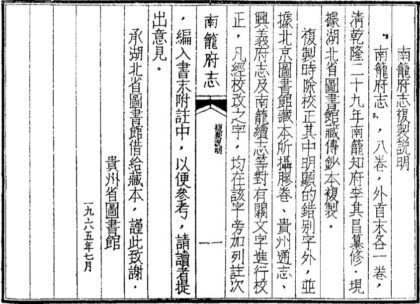 南籠府志復製説明
『南籠府志』，八卷，外首末各一卷，
清乾隆二十九年南籠知府李其昌纂修．現
據湖北省圖書館藏傳鈔本複製．
復製時除校正其中明顯的錯別字外，並
據北京圖書館藏本所攝膠卷、貴州通志、
興義府志及南籠續志等對有關文字進行校
正，凡經校改之字，均在該字旁加列註次
南籠府志
複製説明
一
，編入書末附註中，以便參考，請讀者提
出意見．
承湖北省圖書館借給藏本，謹此致謝．
貴州省圖書館
一九六五年七月